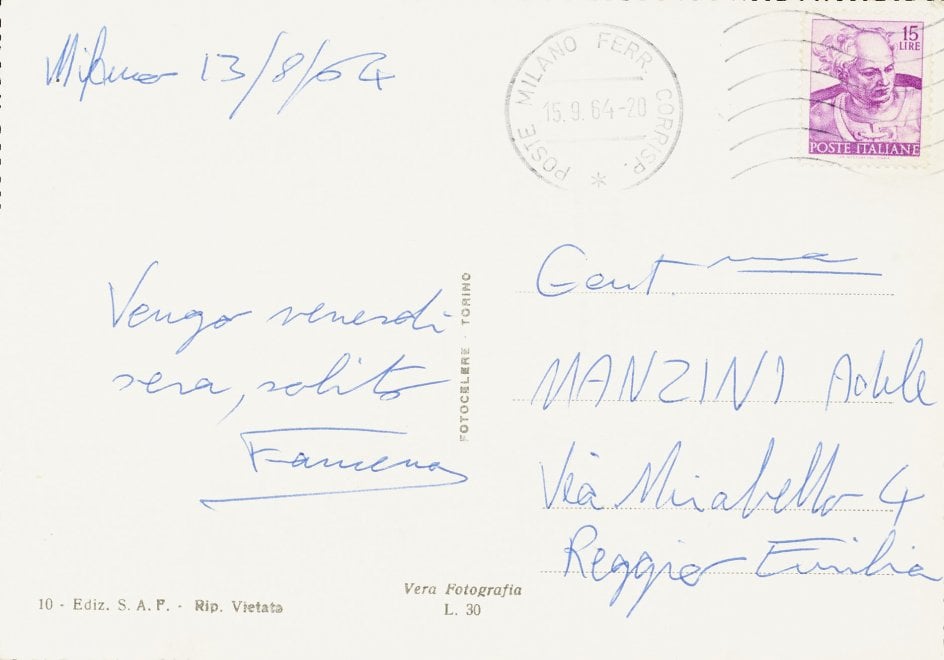 Milano 13/8/64
POSTE MILANO FERR. CORRISP.
15.9.64-20
15
LIRE
POSTE ITALIANE
Vengo venerdì
sera, solito
FOTOCELERE - TORINO
Gent.ma
MANZINI Adele
Via Mirabello 4
Reggio Emilia
10 - Ediz. S. A. F. - Rip. Vietata
Vera Fotografia
L. 30